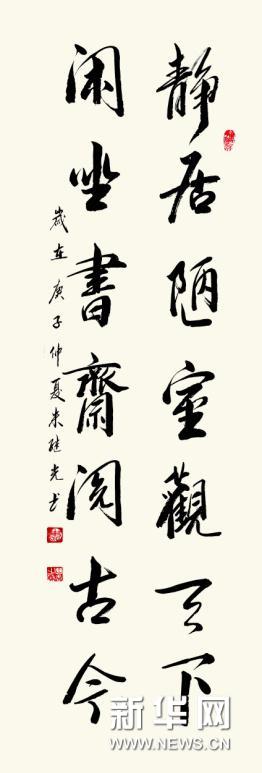 静居陋室觀天下
闲坐書齋阅古今
歲在庚子仲夏朱继光书
新华网
WWW.NEWS.CN